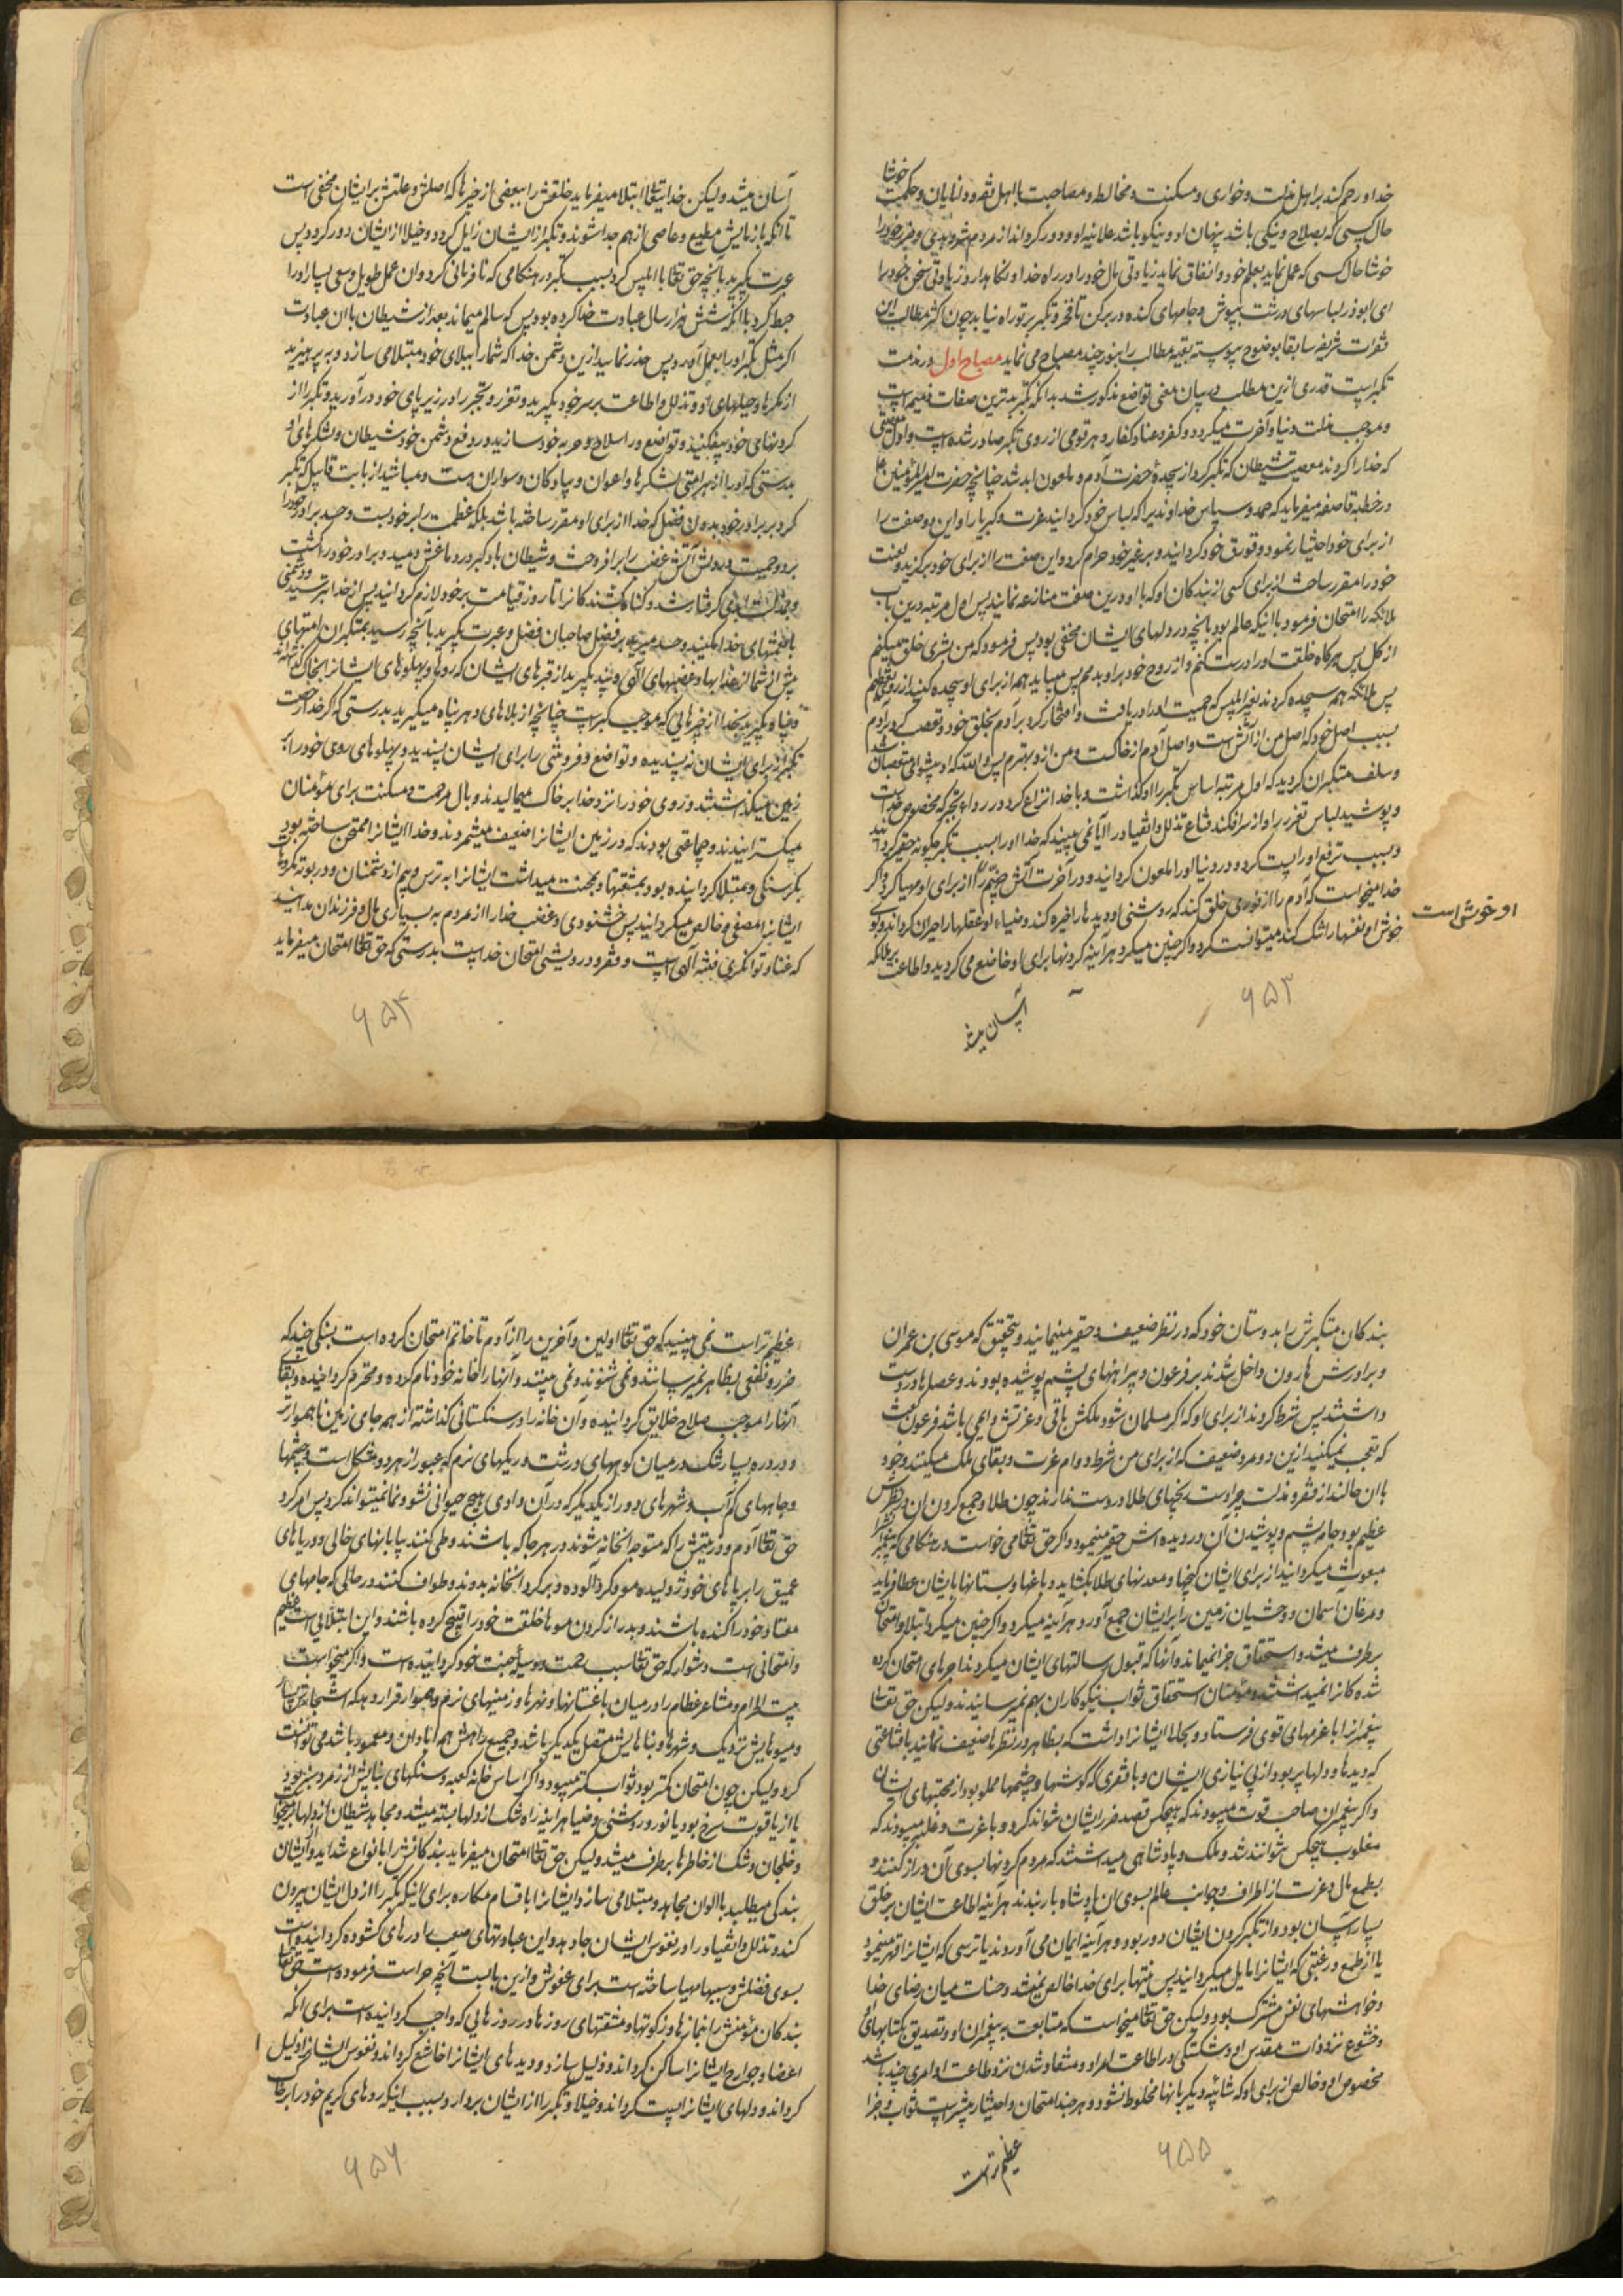 خدا و رحم کند بر اهل مذلت و خواری و مسکنت و مخالطه و مصاحبت با اهل فقه و دانایان و حکمت خوشا
حال کسی که بصلاح و نیکی باشد پنهان او و نیکو باشد علانیه او و دور گرداند از مردم شر و بدی و ضرر خود را
خوشا حال کسی که عمل نماید بعلم خود و انفاق نماید زیادتی مال خود را در راه خدا و نگاهدارد زیادتی سخن خود را
ای ابوذر لباسهای درشت بپوش و جامهای کنده در بر کن تا فخر و تکبر بر تو راه نیابد چون اکثر مطالب این
فقرات شریفه سابقا بوضوح پیوسته بقیه مطالب را بنور چند مصباح می نماید مصباح اول در مذمت
تکبر است قدری ازین مطلب در بیان معنی تواضع مذکور شد بدانکه تکبر بدترین صفات ذمیمه است
و موجب مذلت دنیا و آخرت میگردد و کفر و عناد کفار و هر قومی از روی تکبر صادر شده است و اول معصیتی
که خدا را کردند معصیت شیطان که تکبر کرد از سجدهٔ حضرت آدم و ملعون ابد شد چنانچه حضرت امیرالمؤمنین ع
در خطبه قاصعه میفرماید که حمد و سپاس خداوندیرا که لباس خود گردانید عزت و کبریا را و این دو صفت را
از برای خود اختیار نمود و قورق خود گردانید و بر غیر خود حرام کرد و این صفت را از برای خود برگزید و لعنت
خود را مقرر ساخت از برای کسی از بندکان او که با او درین صفت منازعه نماید پس اول مرتبه درین باب
ملائکه را امتحان فرمود با انکه عالم بود بآنچه در دلهای ایشان مخفی بود پس فرمود که من بشری خلق میکنم
از گل پس هرگاه خلقت او را درست کنم و از روح خود در او بدمم پس میباید همه از برای او سجده کنید از روی تعظیم
پس ملائکه همه سجده کردند بغیر ابلیس که حمیت او را دریافت و افتخار کرد بر آدم بخلق خود و تعصب کرد بر آدم
بسبب اصل خود که اصل من از آتش است و اصل آدم از خاکست و من از او بهترم پس والله که او پیشوای متعصبان شد
و سلف متکبران گردید که اول مرتبه اساس تکبر را او گذاشت و با خدا نزاع کرد در رداء تجبر که مخصوص خداست
و پوشید لباس تعزز را و از سر افکند قناع تذلل و انقیاد را آیا نمی بینید که خدا او را بسبب تکبر چگونه حقیر گردانید
و بسبب ترفع او را پست کرد و در دنیا او را ملعون گردانید و در آخرت آتش جهنم را از برای او مهیا کرد و اگر
خدا میخواست که آدم را از نوری خلق کند که روشنی او دیدها را خیره کند و ضیاء او عقلها را حیران گرداند و بوی
خوش او نفسها را تنگ کند میتوانست کرد و اگر چنین میکرد هرآینه گردنها برای او خاضع می گردید و اطاعت بر ملائکه
او خوش است
آسان میشد
۶۵۳
آسان میشد ولیکن خدایتعالی ابتلا میفرماید خلقش را ببعضی از چیزها که اصلش و علتش بر ایشان مخفی است
تا آنکه بآزمایش مطیع و عاصی از هم جدا شوند و تکبر از ایشان زایل گردد و خیلا از ایشان دور گردد پس
عبرت بگیرید بآنچه حق تعالی با ابلیس کرد بسبب تکبر در هنگامی که نافرمانی کرد و ان عمل طویل و سعی بسیار او را
حبط کرد با انکه شش هزار سال عبادت خدا کرده بود پس که سالم میماند بعد از شیطان با ان عبادت
اگر مثل تکبر او را بعمل آورد پس حذر نمائید ازین دشمن خدا که شما را ببلای خود مبتلا می سازد و به پرهیزید
از مکرها و حیلهای او و تذلل و اطاعت بر سر خود بگیرید و تعزز و تجبر را در زیر پای خود در آورید و تکبر را از
گردنهای خود بیفکنید و تواضع را سلاح و حربه خود سازید در دفع دشمن خود شیطان و لشکرهای او
بدرستی که او را از هر امتی لشکرها و اعوان و پیادکان و سواران هست و مباشید از بابت قابیل که تکبر
کرد بر برادر خود بدون فضلی که خدا از برای او مقرر ساخته باشد بلکه عظمت را بر خود بست و حسد برادر خود را
برد و حمیت در دلش آتش غضب را برافروخت و شیطان باد کبر در دماغش دمید و برادر خود را کشت
کرفتار شد و گناه کشندکانرا تا روز قیامت بر خود لازم گردانید پس از خدا بترسید و دشمنی
با نعمتهای خدا مکنید و حسد مبرید بر فضل صاحبان فضل و عبرت بگیرید بآنچه رسید بمتکبران امتهای
پیش از شما از عذابها و غضبهای الهی و پند بگیرید از قبرهای ایشان که روها و پهلوهای ایشانرا بخاک گذاشته
و پناه بگیرید بخدا از چیزهائی که موجب کبر است چنانچه از بلاهای دهر پناه میگیرید بدرستی که اگر خدا رخصت
تکبر از برای ایشان نه پسندیده و تواضع و فروتنی را برای ایشان پسندید و پهلوهای روی خود را بر
زمین میگذاشتند و روی خود را نزد خدا بر خاک میمالیدند و بال مرحمت و مسکنت برای مؤمنان
میگسترانیدند و جماعتی بودند که در زمین ایشانرا ضعیف میشمردند و خدا ایشانرا ممتحن ساخته بود
بگرسنگی و مبتلا گردانیده بود بمشقتها و بمحنت میداشت ایشانرا به ترس و بیم از دشمنان و در بوته مکروهات
ایشانرا مصفی و خالص میگردانید پس خشنودی و غضب خدا را از مردم به بسیاری مال و فرزندان مدانید
که غنا و توانگری فتنه الهی است و فقر و درویشی امتحان خداست بدرستی که حق تعالی امتحان میفرماید
۶۵۴
بندکان متکبرش را بدوستان خود که در نظر ضعیف و حقیر مینمایند و بتحقیق که موسی بن عمران
و برادرش هارون داخل شدند بر فرعون و پیراهنهای پشم پوشیده بودند و عصاها در دست
داشتند پس شرط کردند از برای او که اگر مسلمان شود ملکش باقی و عزتش دایمی باشد فرعون گفت
که تعجب نمیکنید ازین دو مرد ضعیف که از برای من شرط دوام عزت و بقای ملک میکنند و خود
باان حالند از فقر و مذلت چرا دست رنجهای طلا در دست ندارند چون طلا و جمع کردن ان در نظرش
عظیم بود و جامه پشم و پوشیدن آن در دیده اش حقیر مینمود و اگر حق تعالی می خواست در هنگامی که پیغمبرانرا
مبعوث میگردانید از برای ایشان گنجها و معدنهای طلا بگشاید و باغها و بستانها بایشان عطا فرماید
و مرغان آسمان و وحشیان زمین را برایشان جمع آورد هرآینه میکرد و اگر چنین میکرد ابتلا و امتحان
برطرف میشد و استحقاق جزا نمیماند و آنها که قبول رسالتهای ایشان میکردند اجرهای امتحان کرده
شده کانرا نمیداشتند و مؤمنان استحقاق ثواب نیکوکاران بهم نمیرسانیدند ولیکن حق تعالی
پیغمبرانرا با عزمهای قوی فرستاد و بحالها ایشانرا داشت که بظاهر در نظرها ضعیف نمایند با قناعتی
که دیدها و دلها پر بود از بی نیازی ایشان و با فقری که گوشها و چشمها مملو بود از محنتهای ایشان
و اگر پیغمبران صاحب قوت میبودند که هیچکس قصد ضرر ایشان نتواند کرد و با عزت و غلبه میبودند که
مغلوب هیچکس نتوانند شد و ملک و پادشاهی میداشتند که مردم گردنها بسوی آن دراز کنند و
بطمع مال و عزت از اطراف و جوانب عالم بسوی ان پادشاه بار بندند هرآینه اطاعت ایشان بر خلق
بسیار آسان بود و از تکبر کردن ایشان دور بود و هرآینه ایمان می آوردند یا ترسی که ایشانرا قهر مینمود
یا از طمع و رغبتی که ایشانرا مایل میگردانید پس نیتها برای خدا خالص نمیشد و حسنات میان رضای خدا
و خواهشهای نفس مشترک بود ولیکن حق تعالی میخواست که متابعت پیغمبران او و تصدیق کتابهای او
و خشوع نزد ذات مقدس او و شکستگی در اطاعت امر او و منقاد شدن نزد طاعت او امری چند باشد
مخصوص او و خالص از برای او که شائبه دیگر بانها مخلوط نشود و هر چند امتحان و اختیار بیشتر است ثواب و جزا
عظیم تر است
۶۵۵
عظیم تر است نمی بینید که حق تعالی اولین و آخرین را از آدم تا خاتم امتحان کرده است بسنگی چند که
ضرر و نفعی بظاهر نمیرسانند و نمی شنوند و نمی بینند و آنها را خانه خود نام کرده و محترم گردانیده و بقای
آنها را موجب صلاح خلایق گردانیده و آن خانه را در سنگستانی گذاشته از همه جای زمین ناهموارتر
و در دره بسیار تنگ در میان کوههای درشت و ریگهای نرم که عبور از هر دو مشکل است و چشمها
و چاههای کم آب و شهرهای دور از یکدیگر که در آن وادی هیچ حیوانی نشو و نما نمیتواند کرد پس امر کرد
حق تعالی آدم و ذریتش را که متوجه انخانه شوند در هر جا که باشند و طی کنند بیابانهای خالی و دریاهای
عمیق را بر پاهای خود ژولیده مو و گرد آلوده و بر گرد انخانه بدوند و طواف کنند در حالتی که جامهای
معتاد خود را کنده باشند و بدراز کردن موها خلقت خود را قبیح کرده باشند و این ابتلائی است عظیم
و امتحانی است دشوار که حق تعالی سبب رحمت و وسیله جنت خود گردانیده است و اگر میخواست
بیت الحرام و مشاعر عظام را در میان باغستانها و نهرها و زمینهای نرم و هموار قرار دهد که اشجارش بسیار
و میوهایش نزدیک و شهرها و بناهایش متصل بیکدیگر باشد و جمیع راهش هم آبادان و معمور باشد می توانست
کرد ولیکن چون امتحان کمتر بود ثواب کمتر میبود و اگر اساس خانه کعبه و سنگهای بنایش از زمرد سبز بود
یا از یاقوت سرخ بود یا نور و روشنی و ضیا هرآینه راه شک از دلها بسته میشد و مجاهد شیطان از دلها بر میخواست
و خلجان و شک از خاطرها برطرف میشد ولیکن حق تعالی امتحان میفرماید بندکانش را بانواع شداید و از ایشان
بندگی میطلبد باالوان مجاهده و مبتلا می سازد ایشانرا باقسام مکاره برای اینکه تکبر را از دل ایشان بیرون
کند و تذلل و انقیاد را در نفوس ایشان جا دهد و این عبادتهای صعب را درهای گشوده گردانیده است
بسوی فضلش و سببهای مهیا ساخته است برای عفوش و ازین بابت آنچه حراست فرموده است حق تعالی
بندکان مؤمنش را بنمازها و زکوتها و مشقتهای روزها در روزهایی که واجب گردانیده است برای انکه
اعضا و جوارح ایشانرا ساکن گرداند و ذلیل سازد و دیدهای ایشانرا خاشع گرداند و نفوس ایشانرا ذلیل
گرداند و دلهای ایشانرا پست گرداند و خیلا و تکبر را از ایشان بردارد و بسبب اینکه روهای کریم خود را بر خاک
۶۵۶